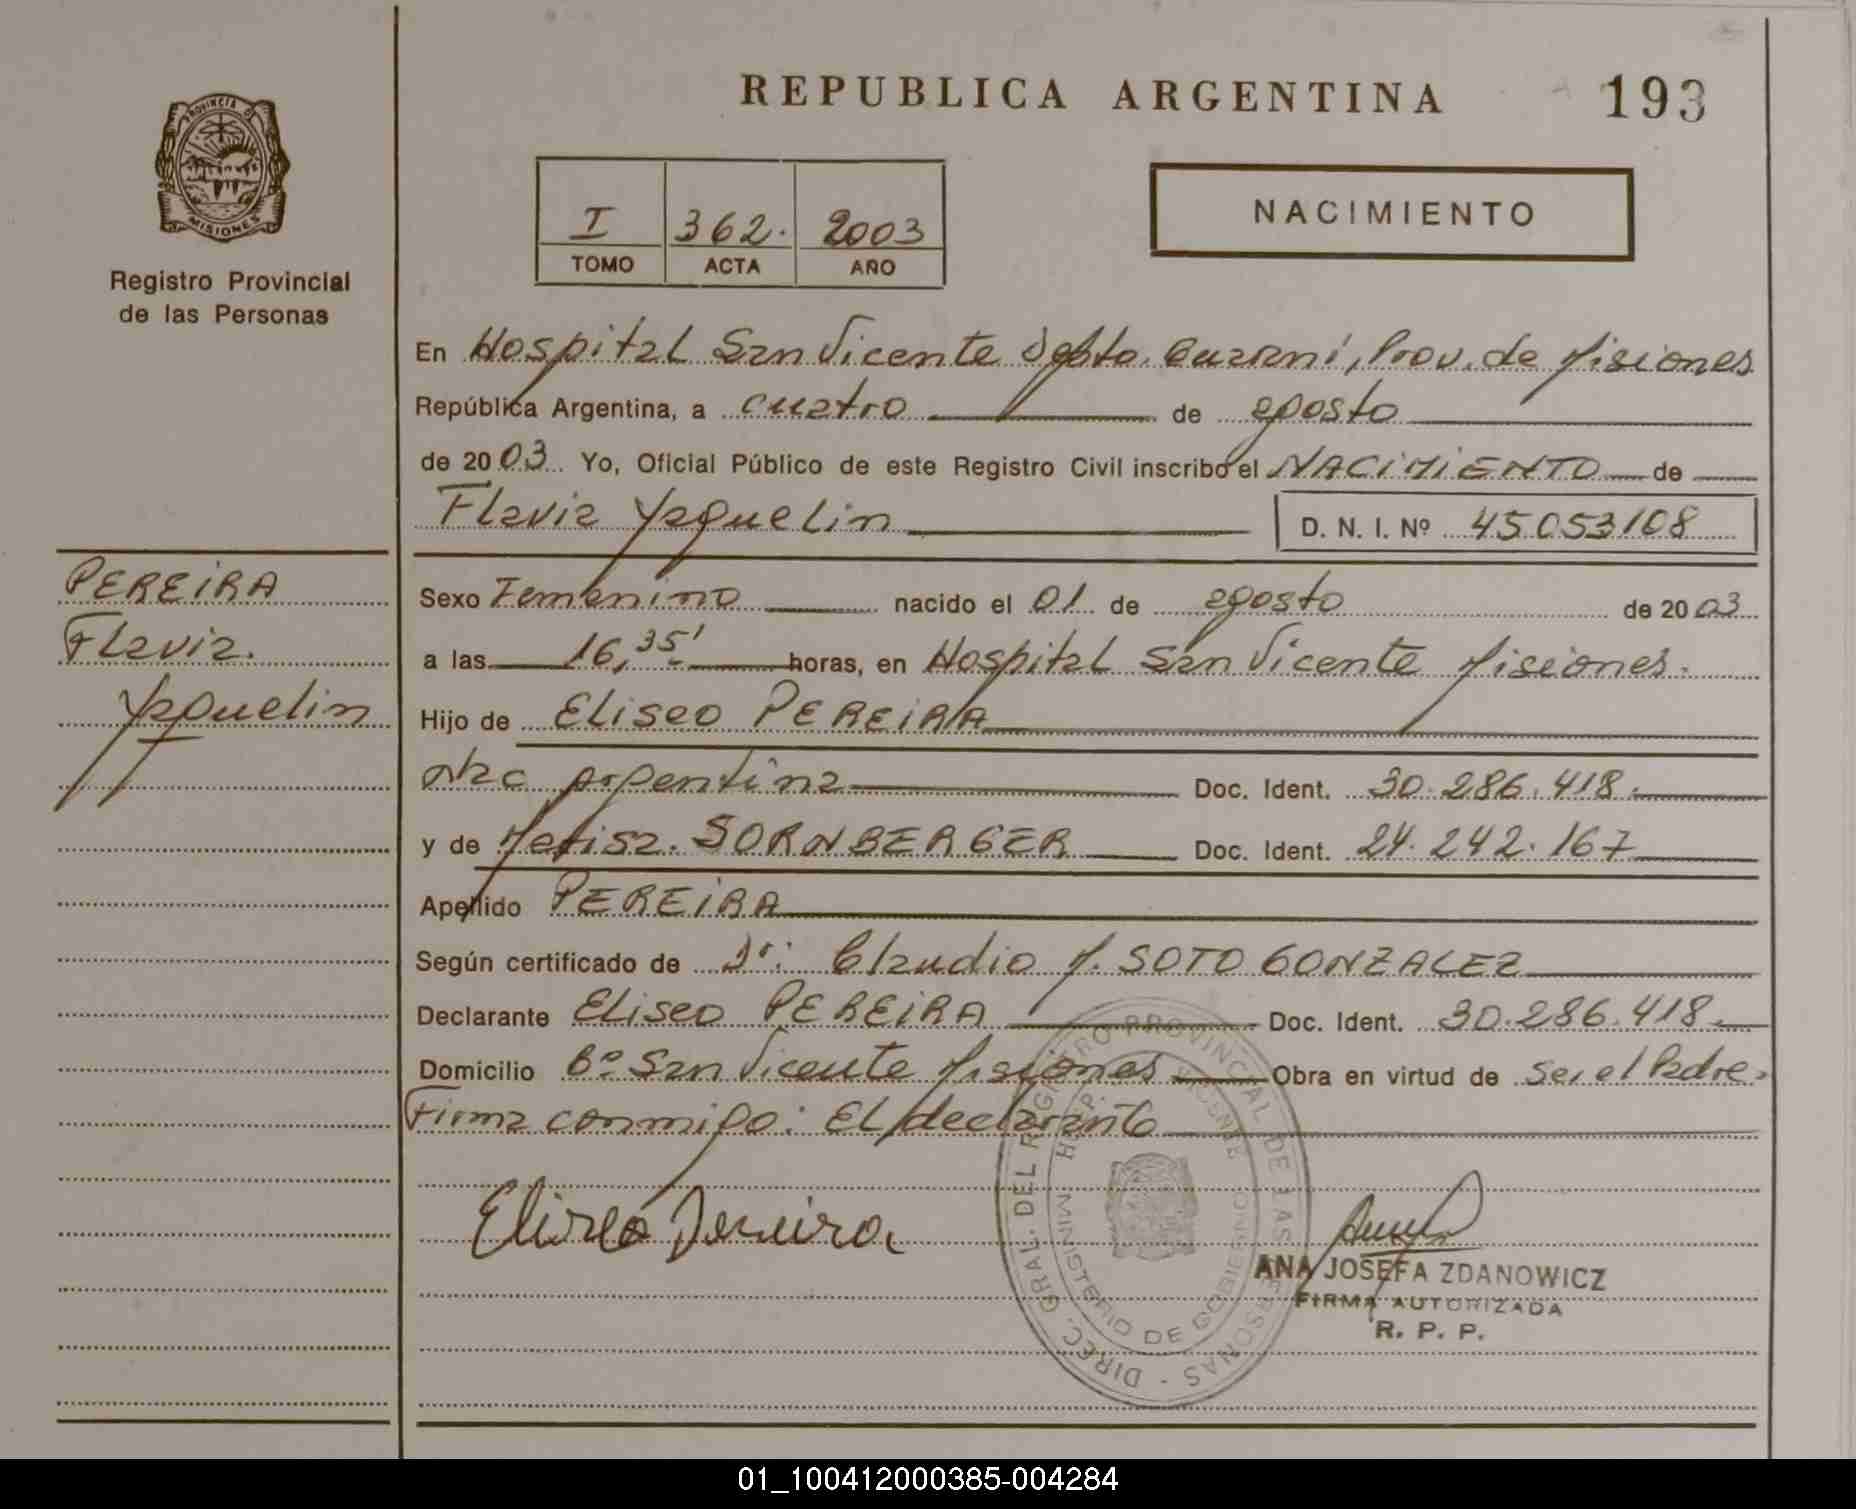 REPUBLICA ARGENTINA 193
PROVINCIA D
MISIONES
Registro Provincial
de las Personas
I 362. 2003
TOMO ACTA AÑO
NACIMIENTO
En Hospital San Vicente Dpto. Guaraní, Prov. de Misiones
República Argentina, a cuatro de agosto
de 2003 Yo, Oficial Público de este Registro Civil inscribo el NACIMIENTO de
Flavia Yaquelin D. N. I. Nº 45.053.108
PEREIRA
Flavia.
Yaquelin
Sexo Femenino nacido el 01 de agosto de 2003
a las 16,35' horas, en Hospital San Vicente Misiones.
Hijo de Eliseo PEREIRA
Nac Argentina Doc. Ident. 30.286.418.
y de Marisa. SORNBERGER Doc. Ident. 24.242.167
Apellido PEREIRA
Según certificado de Dr: Claudio M. SOTO GONZALEZ
Declarante Eliseo PEREIRA Doc. Ident. 30.286.418.
Domicilio Bº San Vicente Misiones Obra en virtud de ser el Padre.
Firma conmigo: El declarante
Eliseo Pereira
DIREC. GRAL. DEL REGISTRO PROVINCIAL DE LAS PERSONAS -
MINISTERIO DE GOBIERNO
ANA JOSEFA ZDANOWICZ
FIRMA AUTORIZADA
R. P. P.
01_100412000385-004284